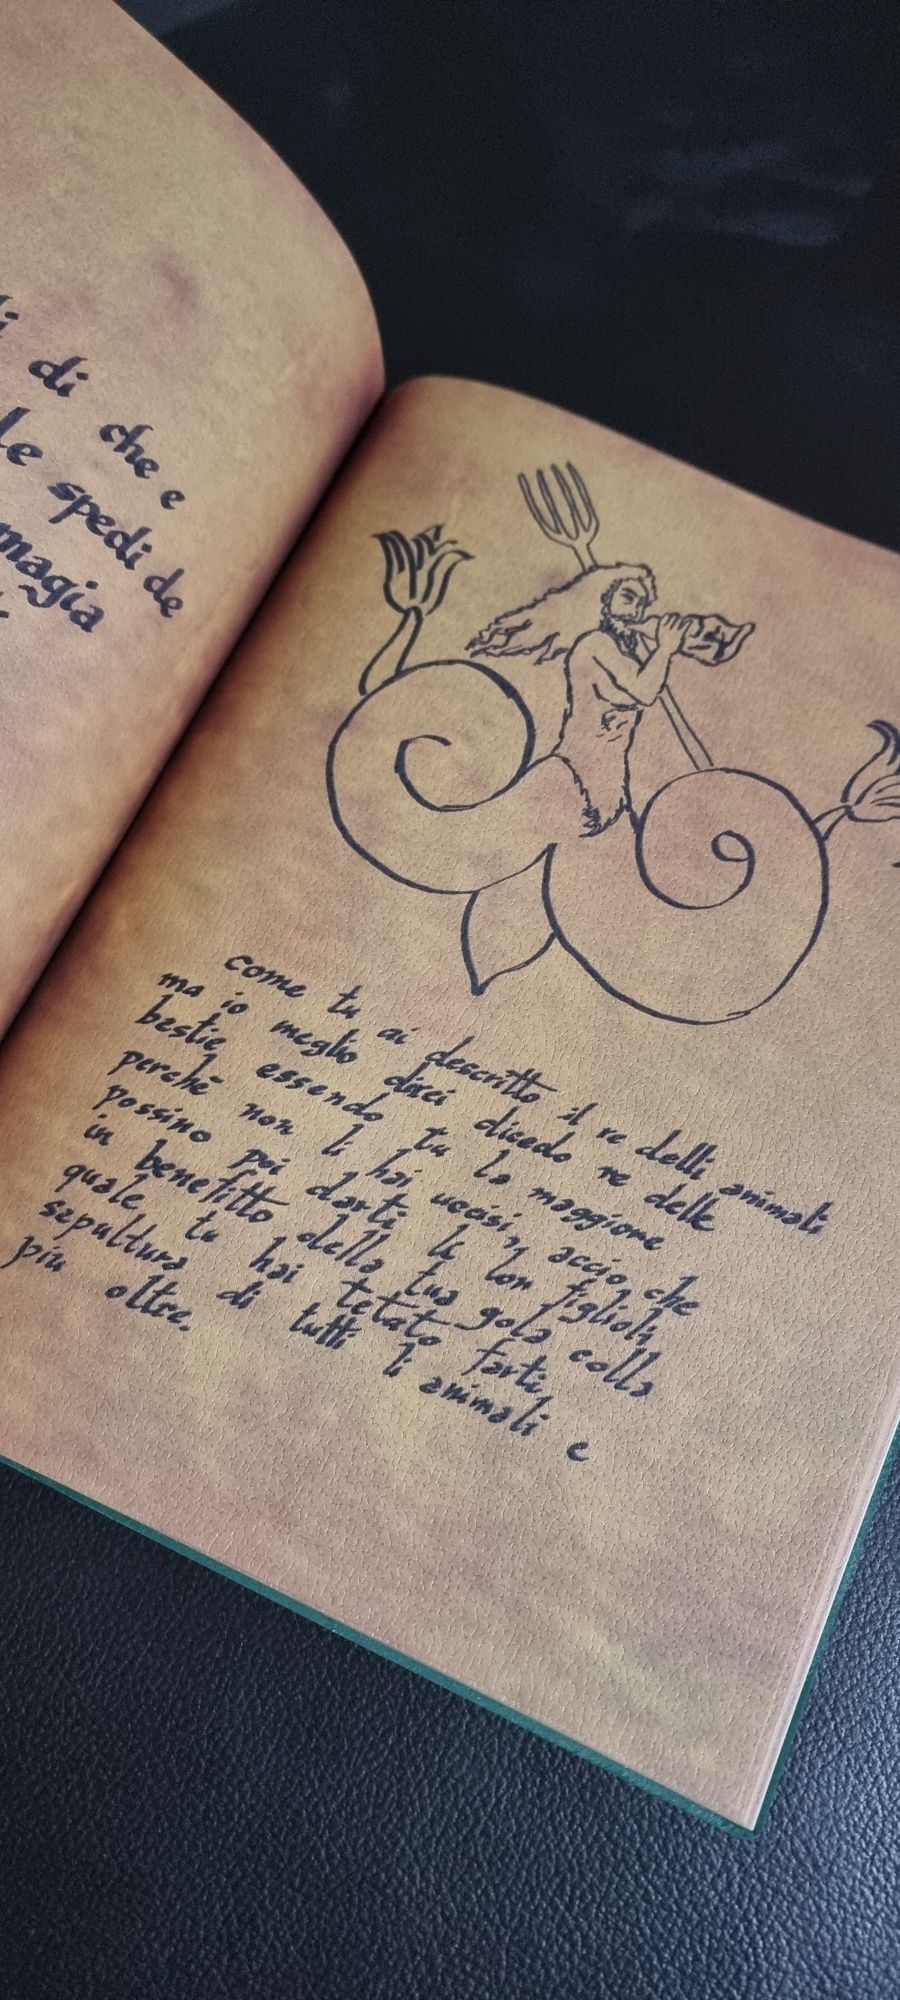 di che e
le spedi de
magia
come tu ai descritto il re delli animali
ma io meglio dicedo re delle
bestie essendo tu la maggiore
perchè non li hai uccisi, accio che
possino poi darti li lor figlioli
in benefitto della tua gola colla
quale tu hai tetato farti
sepultura di tutti li animali e
piu oltre.